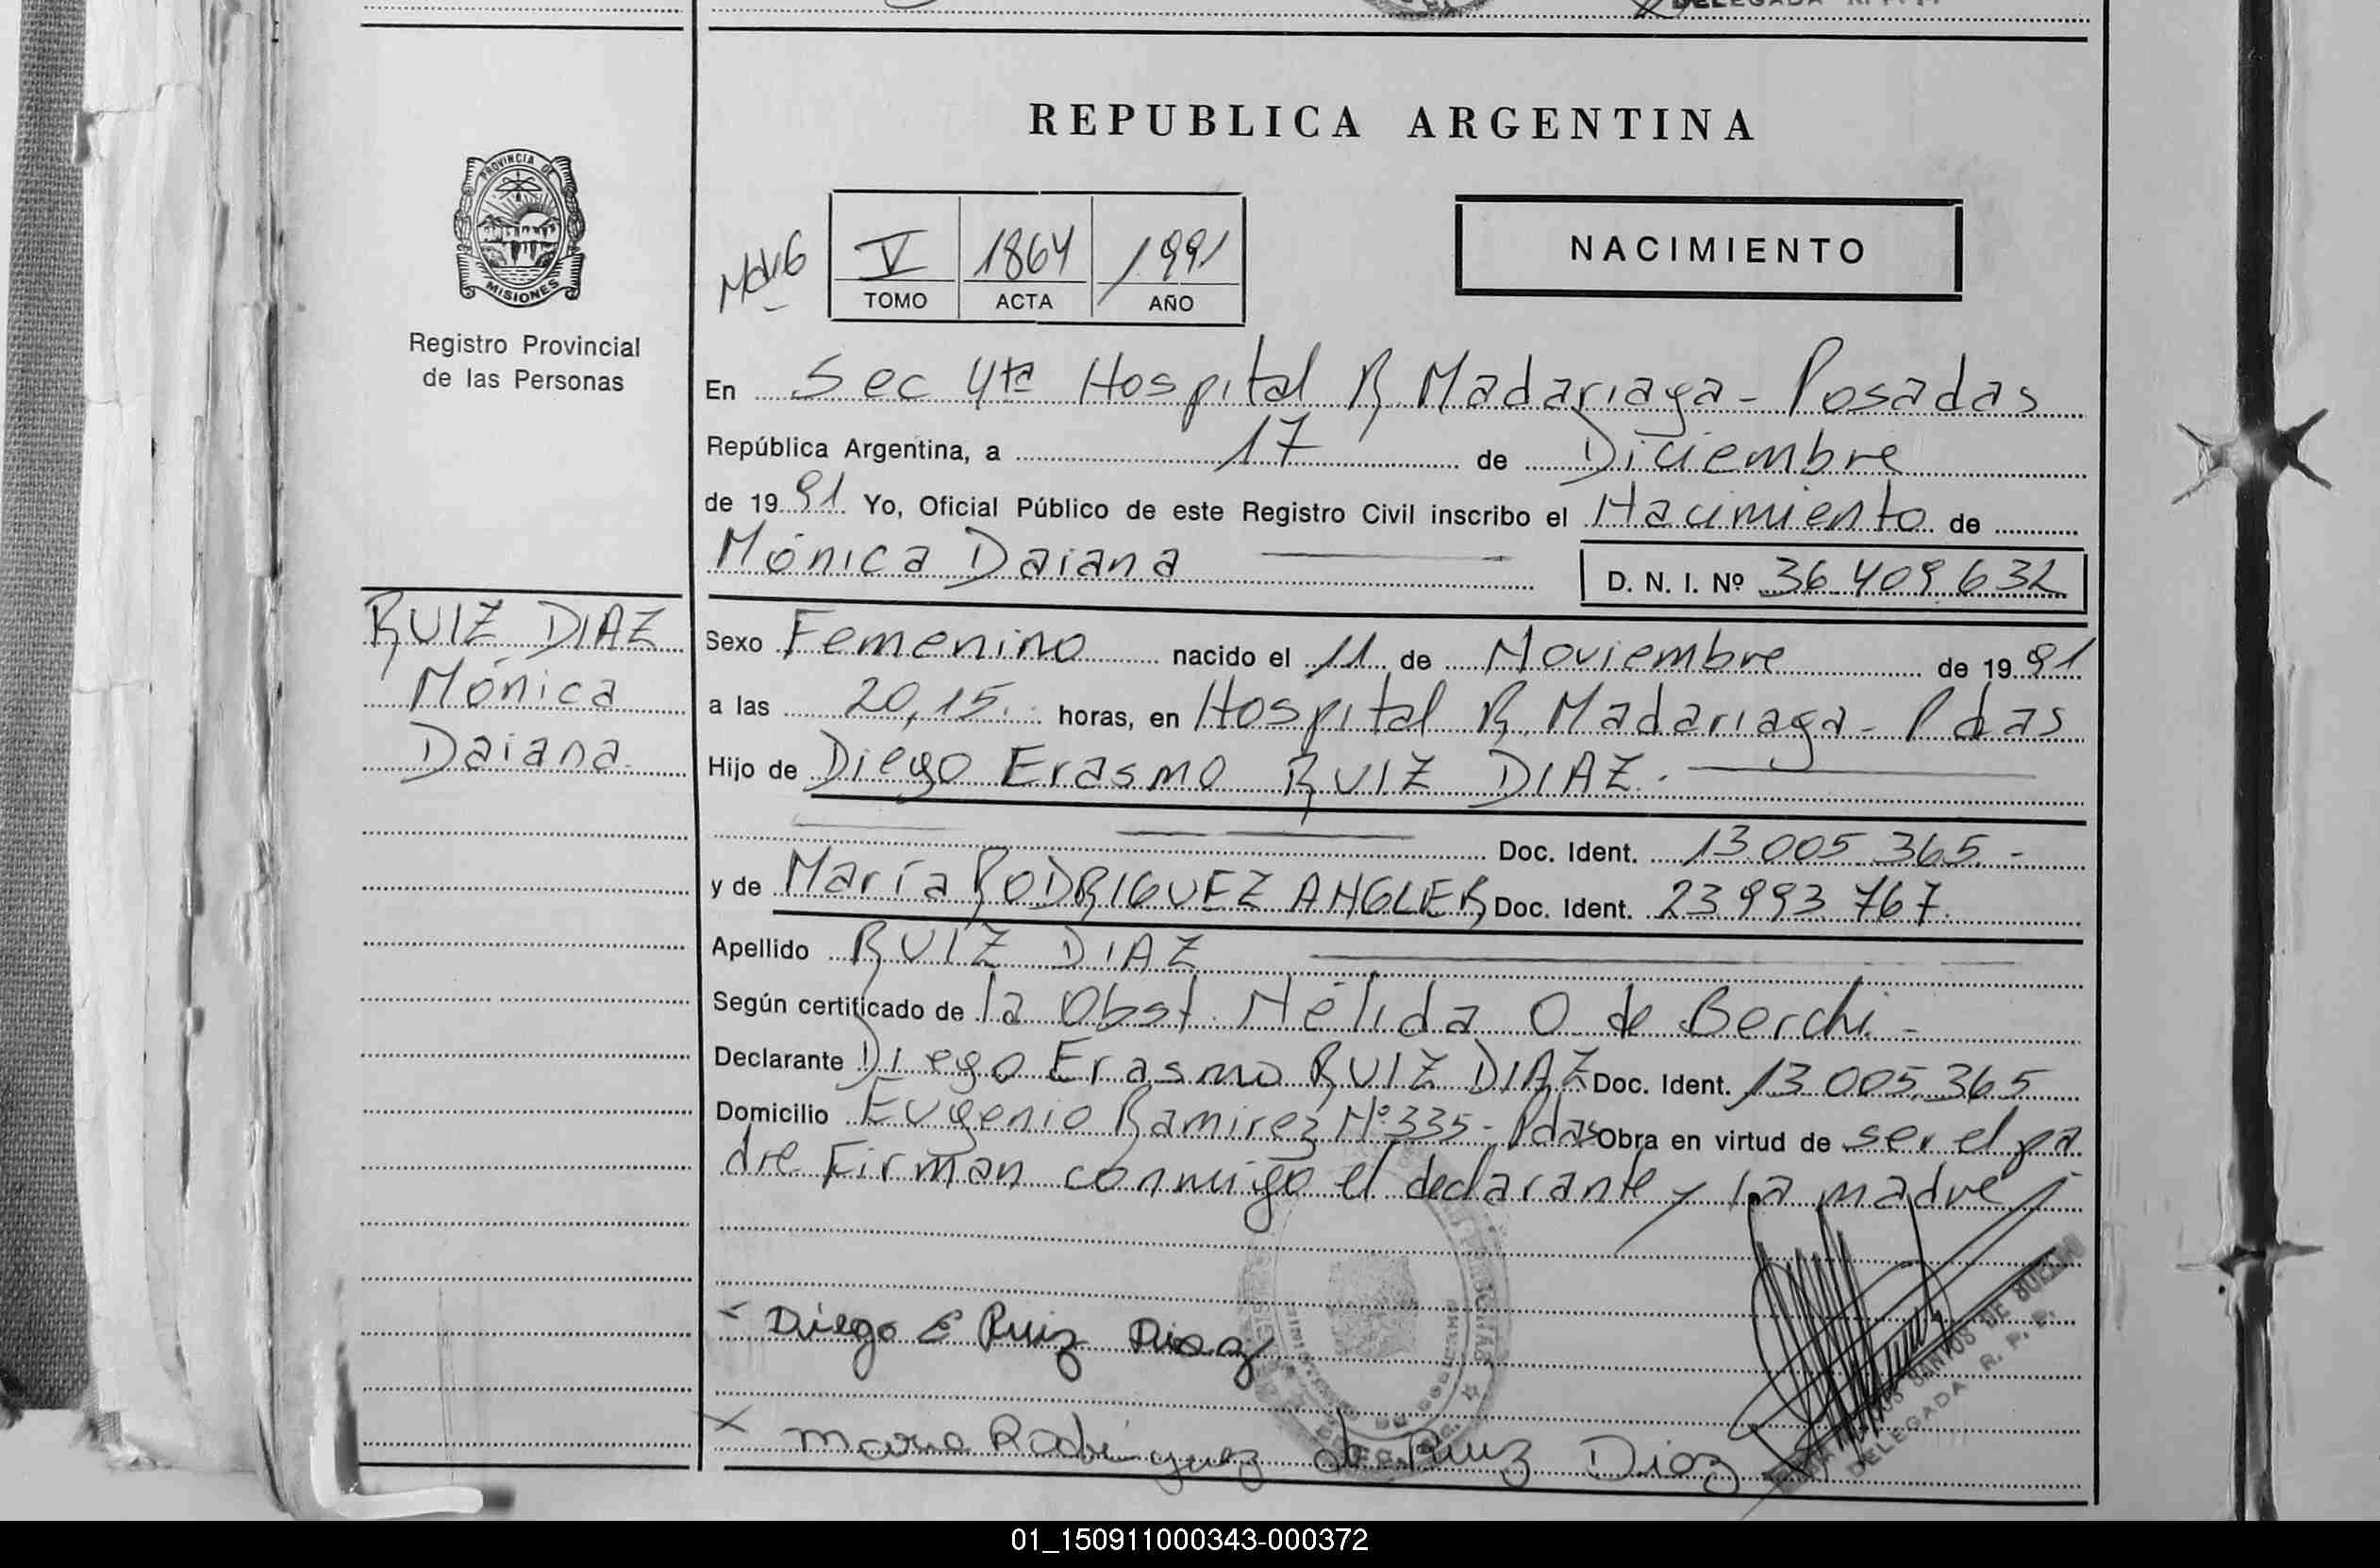 DELEGADA R. P. P.
REPUBLICA ARGENTINA
PROVINCIA DE
MISIONES
Registro Provincial
de las Personas
V 1864 1991
TOMO ACTA AÑO
NACIMIENTO
En Sec 4ta Hospital R. Madariaga - Posadas
República Argentina, a 17 de Diciembre
de 1991 Yo, Oficial Público de este Registro Civil inscribo el Nacimiento de
Mónica Daiana D. N. I. Nº 36.409.632
RUIZ DIAZ
Mónica
Daiana
Sexo Femenino nacido el 11 de Noviembre de 1991
a las 20,15 horas, en Hospital R. Madariaga - Pdas
Hijo de Diego Erasmo RUIZ DIAZ.
Doc. Ident. 13.005.365.-
y de María RODRIGUEZ ANGLER Doc. Ident. 23.993.767
Apellido RUIZ DIAZ
Según certificado de la Obst. Nélida O de Berchi -
Declarante Diego Erasmo RUIZ DIAZ Doc. Ident. 13.005.365
Domicilio Eugenio Ramirez Nº 335 - Pdas Obra en virtud de ser el pa
dre Firman conmigo el declarante y la madre
Diego E Ruiz Diaz
Maria Rodriguez de Ruiz Diaz
SANTOS DE BUENO
DELEGADA R. P. P.
01_150911000343-000372